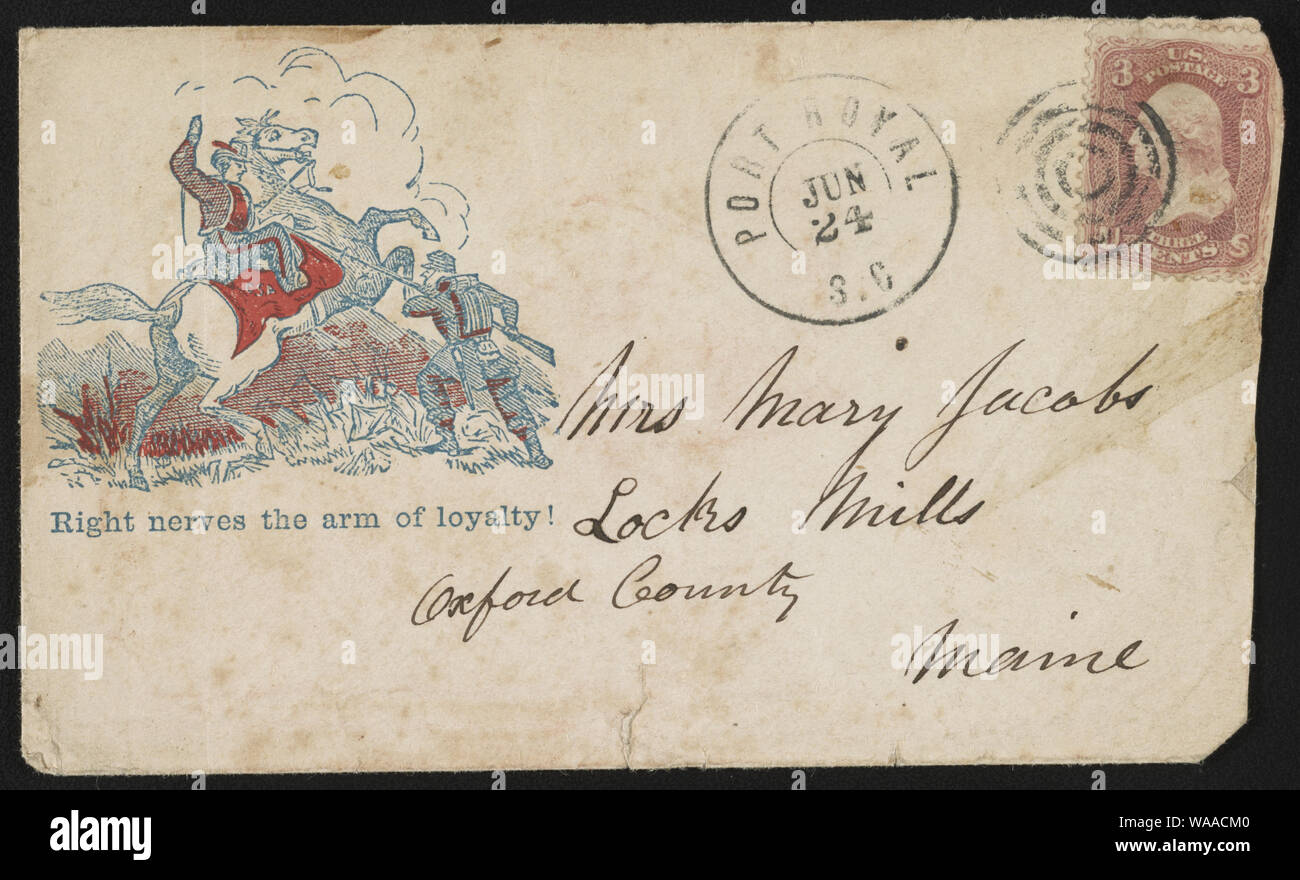 3 U.S. 3
POSTAGE
THREE
CENTS
PORT ROYAL
JUN
24
S.C
Right nerves the arm of loyalty!
Mrs Mary Jacobs
Locks Mills
Oxford County
Maine
a
alamy
alamy stock photo
WAACM0
www.alamy.com